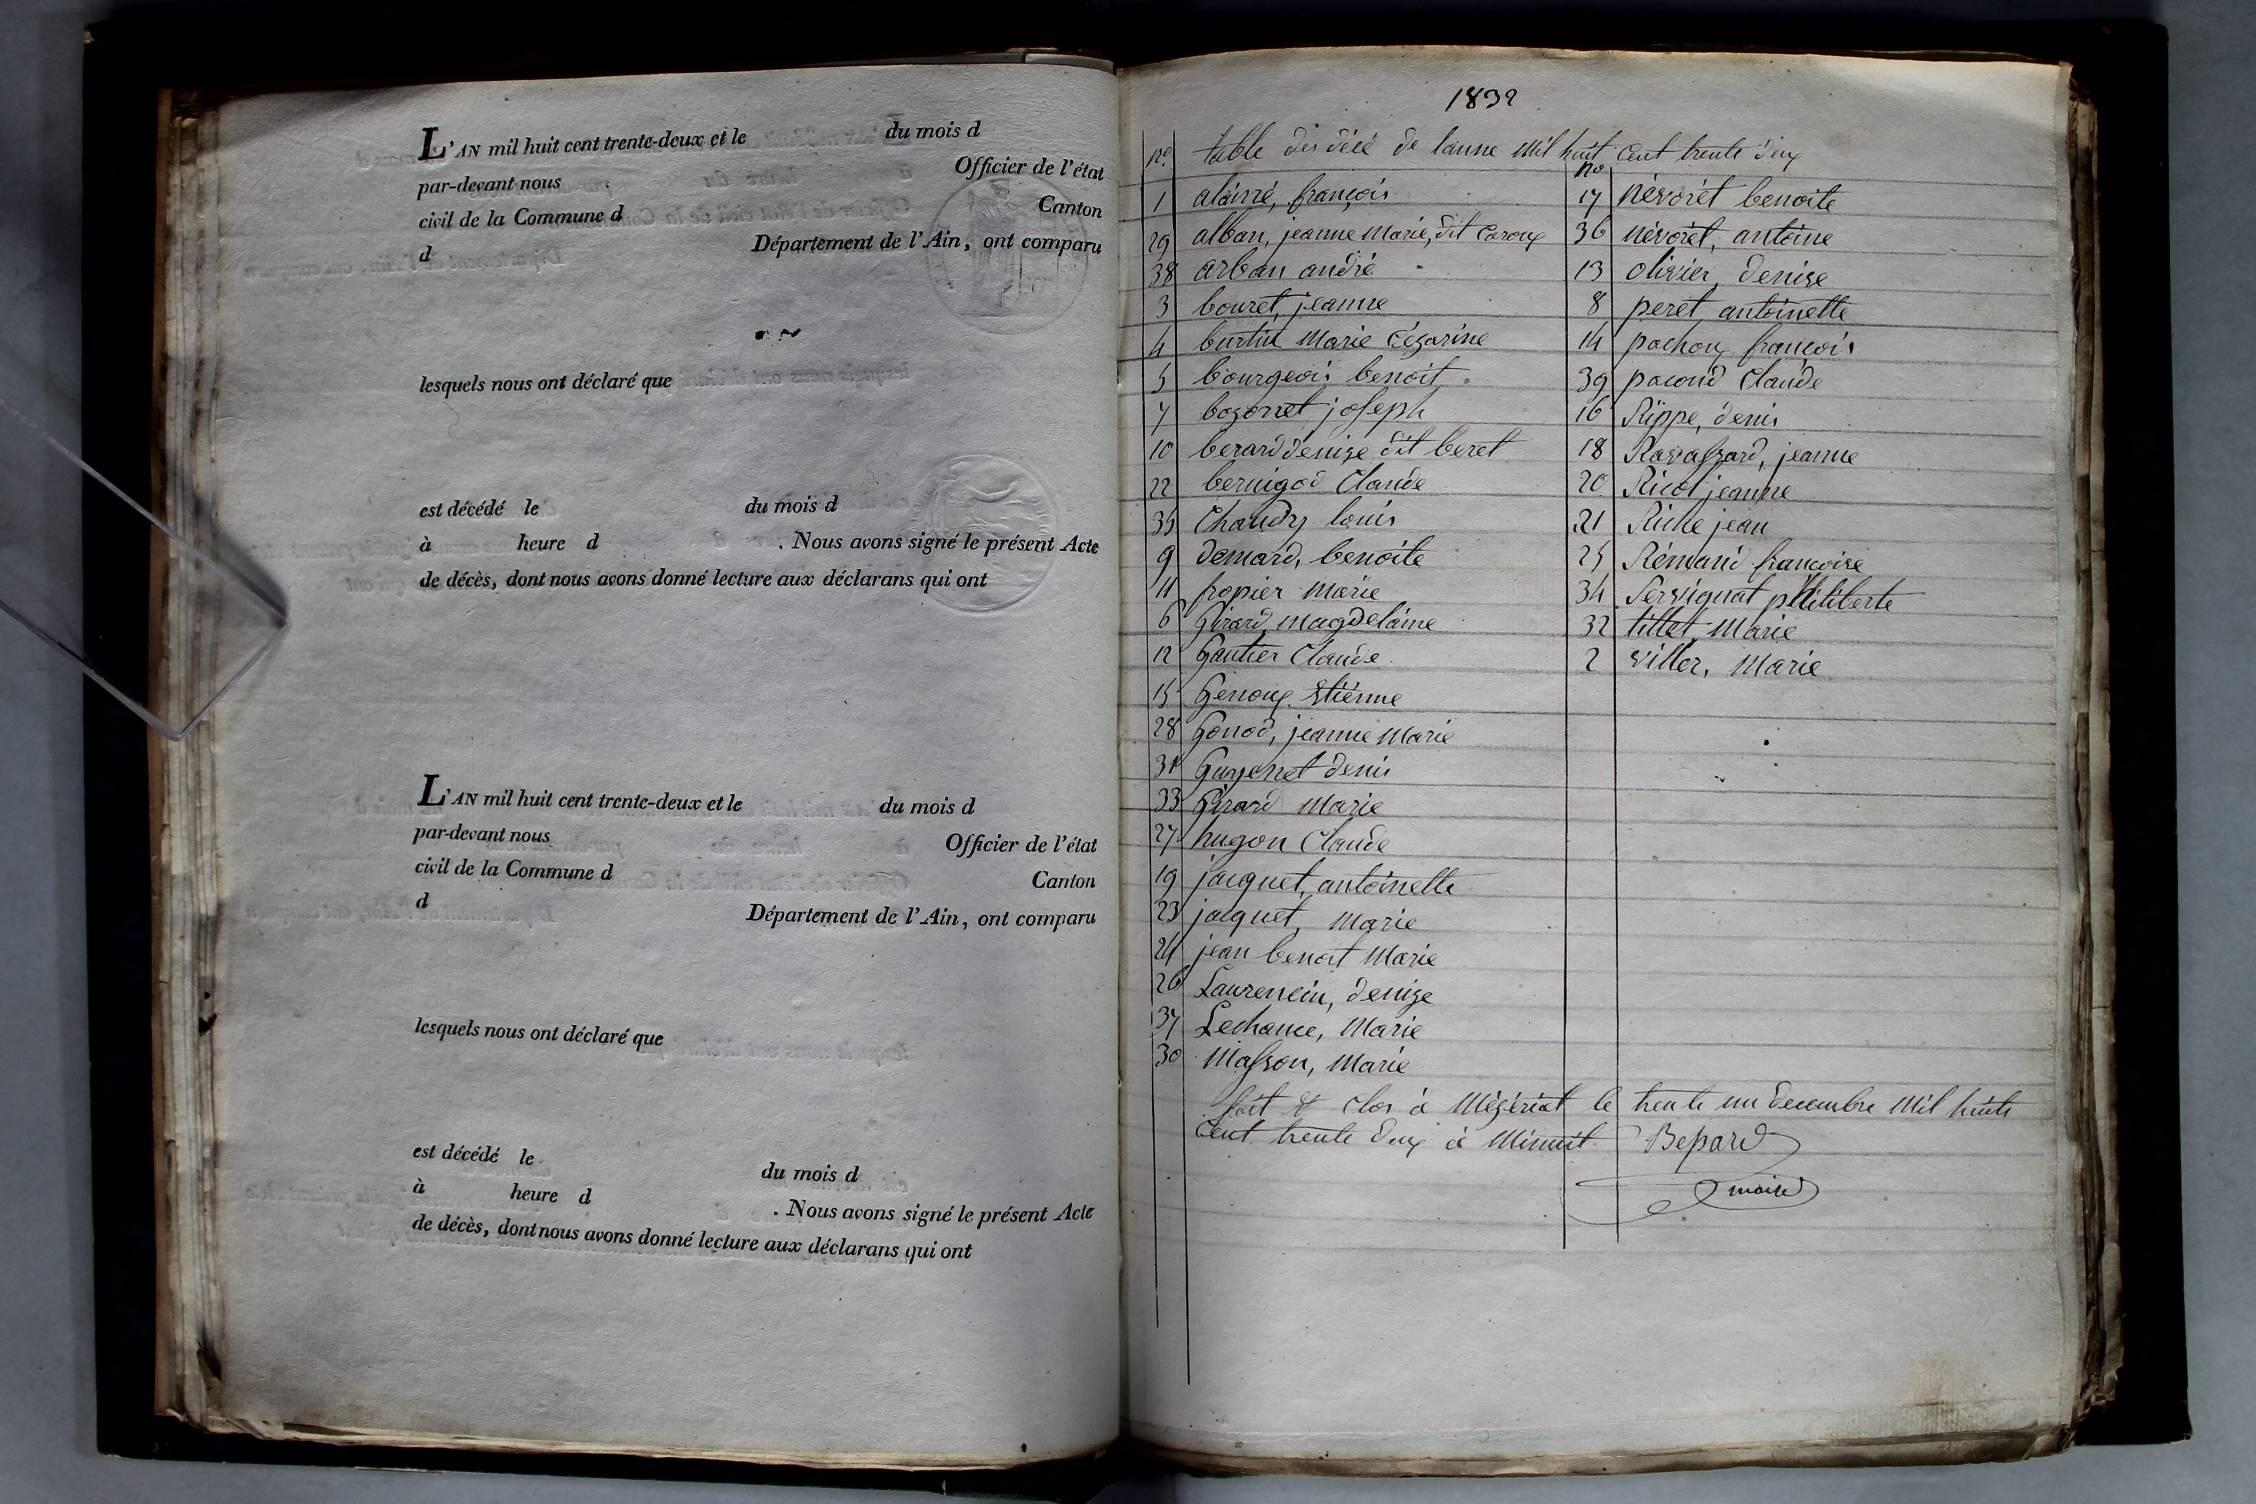 L'AN mil huit cent trente-deux et le du mois d
par-devant nous Officier de l'état
civil de la Commune d Canton
d Département de l'Ain, ont comparu
lesquels nous ont déclaré que
est décédé le du mois d
à heure d . Nous avons signé le présent Acte
de décès, dont nous avons donné lecture aux déclarans qui ont
L'AN mil huit cent trente-deux et le du mois d
par-devant nous Officier de l'état
civil de la Commune d Canton
d Département de l'Ain, ont comparu
lesquels nous ont déclaré que
est décédé le du mois d
à heure d . Nous avons signé le présent Acte
de décès, dont nous avons donné lecture aux déclarans qui ont
1832
no table des décé de lanne mil huit cent trente deux
1 françois
29 alban, jeanne marie, dit caroux
38 arban andré
3 bouret, jeanne
4 burtin marie cézarine
5 bourgeois benoit
7 bozonnet joseph
10 berard denize dit beret
22 bernigod Claude
35 Chaudy louis
9 demard, benoite
11 fropier marie
6 Girard, magdelaine
12 Gautier Claude
15 Genoux Etienne
28 Gonod, jeanne marie
31 Guyennet denis
33 Girard marie
27 hugon Claude
19 jacquet, antoinette
23 jacquet, marie
24 jean benoit marie
26 Laurencin, denize
37 Lechance, marie
30 Masson, marie
no
17 névoret benoite
36 névoret, antoine
13 olivier, denise
8 peret, antoinette
14 pochoux françois
39 pacoud Claude
16 Rippe, denis
18 Ravassard, jeanne
20 Ricol jeanne
21 Riche jean
25 Rémand françoise
34 Servignat philiberte
32 tillet, marie
2 viller, marie
fait & clos à Mézériat le trente un decembre mil huite
cent trente deux à minuit
maire